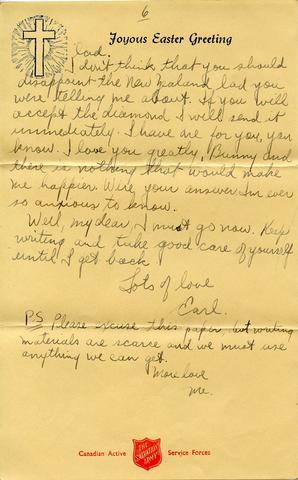 6
Joyous Easter Greeting
lad.
I don't think that you should
disappoint the New Zealand lad you
were telling me about. If you will
accept the diamond I will send it
immediately. I have one for you, you
know. I love you greatly, Bunny and
there is nothing that would make
me happier. Wire your answer I'm ever
so anxious to know.
Well, my dear, I must go now. Keep
writing and take good care of yourself
until I get back
Lots of love
Earl.
P.S. Please excuse this paper, but writing
materials are scarce and we must use
anything we can get.
More love
Me.
Canadian Active Service Forces
THE SALVATION ARMY